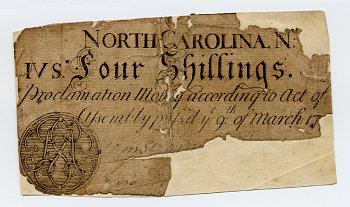 NORTH CAROLINA. N.º
IVS. Four Shillings.
Proclamation Money according to Act of
Assembly pass'd yᵉ 9.th of March 17